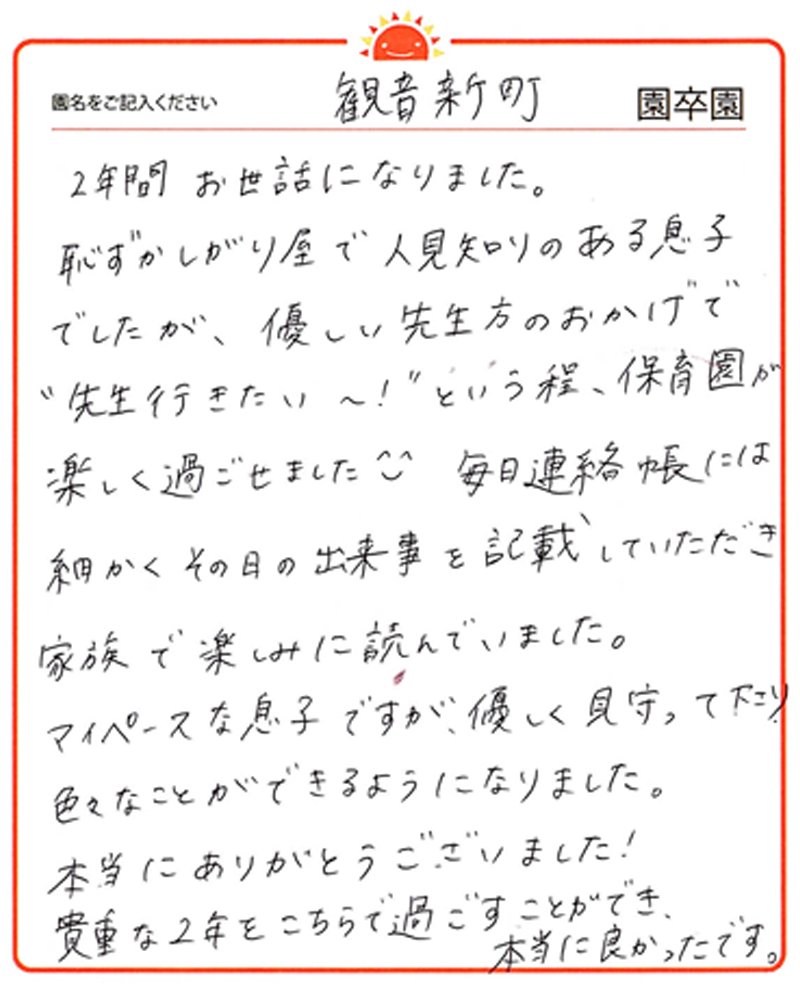 園名をご記入ください 観音新町 園卒園
2年間 お世話になりました。
恥ずかしがり屋で人見知りのある息子
でしたが、優しい先生方のおかげで
"先生行きたい～!"という程、保育園が
楽しく過ごせました^^ 毎日連絡帳には
細かくその日の出来事を記載していただき
家族で楽しみに読んでいました。
マイペースな息子ですが、優しく見守って下さり
色々なことができるようになりました。
本当にありがとうございました!
貴重な2年をこちらで過ごすことができ、
本当に良かったです。